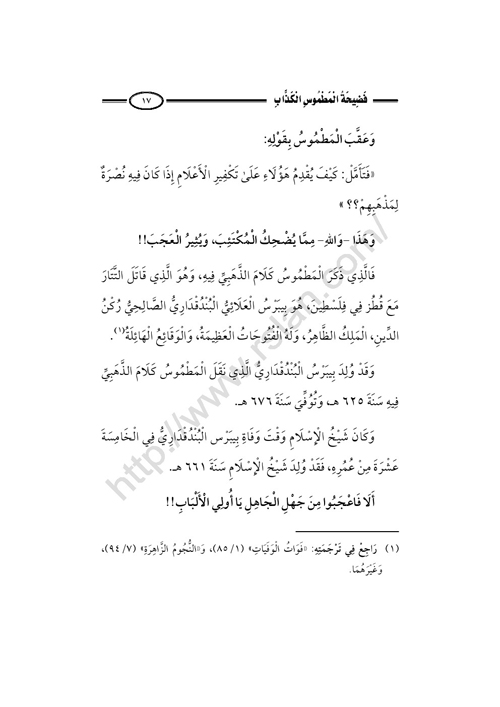 فَضِيحَةُ الْمَطْمُوسِ الْكَذَّابِ
١٧
وَعَقَّبَ الْمَطْمُوسُ بِقَوْلِهِ:
«فَتَأَمَّلْ: كَيْفَ يُقْدِمُ هَؤُلَاءِ عَلَىٰ تَكْفِيرِ الْأَعْلَامِ إِذَا كَانَ فِيهِ نُصْرَةٌ
لِمَذْهَبِهِمْ؟؟ »
وَهَذَا -وَاللهِ- مِمَّا يُضْحِكُ الْمُكْتَئِبَ، وَيُثِيرُ الْعَجَبَ!!
فَالَّذِي ذَكَرَ الْمَطْمُوسُ كَلَامَ الذَّهَبِيِّ فِيهِ، وَهُوَ الَّذِي قَاتَلَ التَّتَارَ
مَعَ قُطُزَ فِي فِلَسْطِينَ، هُوَ بِيبَرْسُ الْعَلَائِيُّ الْبُنْدُقْدَارِيُّ الصَّالِحِيُّ رُكْنُ
الدِّينِ، الْمَلِكُ الظَّاهِرُ، وَلَهُ الْفُتُوحَاتُ الْعَظِيمَةُ، وَالْوَقَائِعُ الْهَائِلَةُ(١).
وَقَدْ وُلِدَ بِيبَرْسُ الْبُنْدُقْدَارِيُّ الَّذِي نَقَلَ الْمَطْمُوسُ كَلَامَ الذَّهَبِيِّ
فِيهِ سَنَةَ ٦٢٥ هـ، وَتُوُفِّيَ سَنَةَ ٦٧٦ هـ.
وَكَانَ شَيْخُ الْإِسْلَامِ وَقْتَ وَفَاةِ بِيبَرْس الْبُنْدُقْدَارِيُّ فِي الْخَامِسَةَ
عَشْرَةَ مِنْ عُمُرِهِ، فَقَدْ وُلِدَ شَيْخُ الْإِسْلَامِ سَنَةَ ٦٦١ هـ.
أَلَا فَاعْجَبُوا مِنَ جَهْلِ الْجَاهِلِ يَا أُولِي الْأَلْبَابِ!!
(١) رَاجِعْ فِي تَرْجَمَتِهِ: «فَوَاتُ الْوَفَيَاتِ» (١/ ٨٥)، وَ«النُّجُومُ الزَّاهِرَةِ» (٧/ ٩٤)،
وَغَيْرَهُمَا.
http://www.rslan.com/